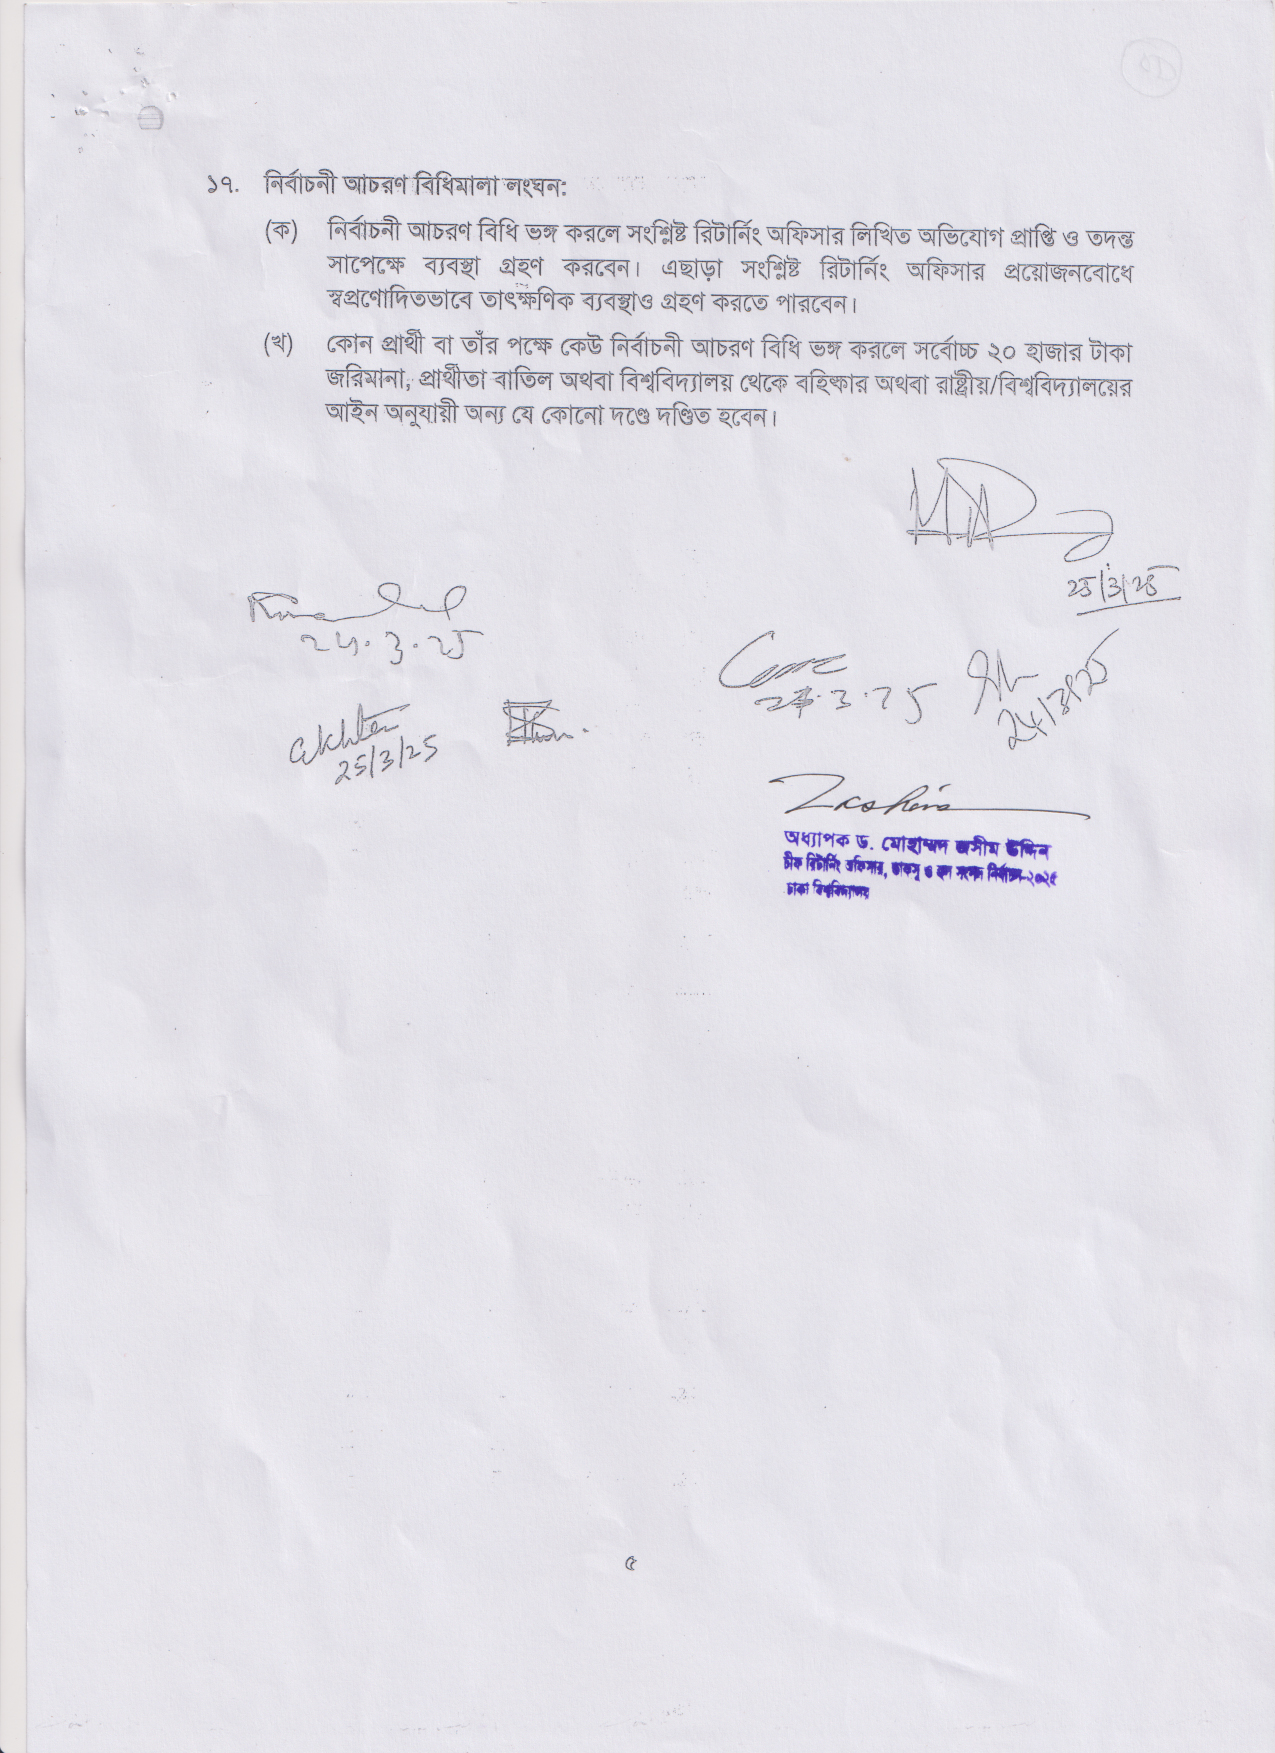 ১৭. নির্বাচনী আচরণ বিধিমালা লংঘন:
(ক) নির্বাচনী আচরণ বিধি ভঙ্গ করলে সংশ্লিষ্ট রিটার্নিং অফিসার লিখিত অভিযোগ প্রাপ্তি ও তদন্ত
সাপেক্ষে ব্যবস্থা গ্রহণ করবেন। এছাড়া সংশ্লিষ্ট রিটার্নিং অফিসার প্রয়োজনবোধে
স্বপ্রণোদিতভাবে তাৎক্ষণিক ব্যবস্থাও গ্রহণ করতে পারবেন।
(খ) কোন প্রার্থী বা তাঁর পক্ষে কেউ নির্বাচনী আচরণ বিধি ভঙ্গ করলে সর্বোচ্চ ২০ হাজার টাকা
জরিমানা, প্রার্থীতা বাতিল অথবা বিশ্ববিদ্যালয় থেকে বহিষ্কার অথবা রাষ্ট্রীয়/বিশ্ববিদ্যালয়ের
আইন অনুযায়ী অন্য যে কোনো দণ্ডে দণ্ডিত হবেন।
25/3/25
24.3.25
24/3/25
25/3/25
অধ্যাপক ড. মোহাম্মদ জসীম উদ্দিন
চীফ রিটার্নিং অফিসার, ডাকসু ও হল সংসদ নির্বাচন-২০২৫
ঢাকা বিশ্ববিদ্যালয়
৫